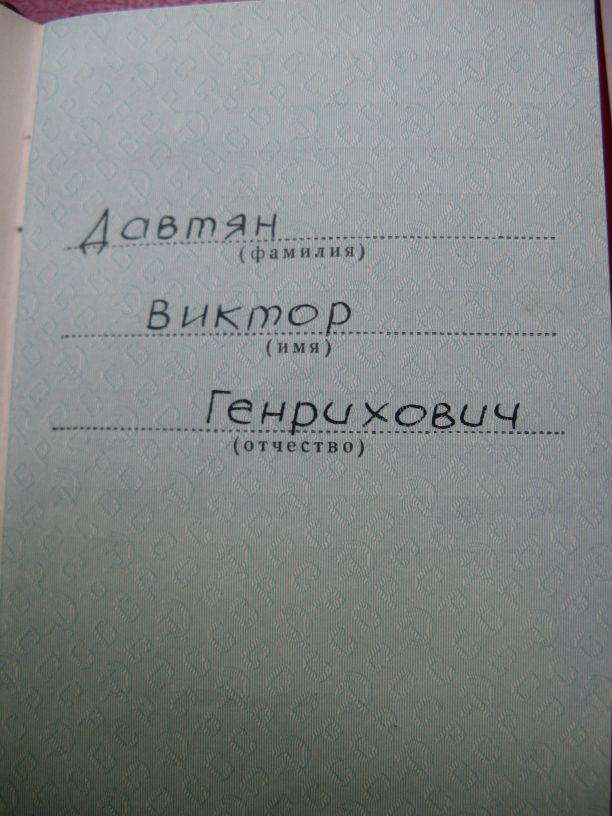 Давтян
(фамилия)
Виктор
(имя)
Генрихович
(отчество)